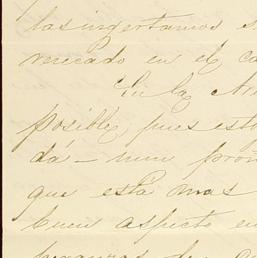 las insertamos s
vericado en el ca
En la
posible, pues esto
dá — muy pron
que está mas
buen aspecto en